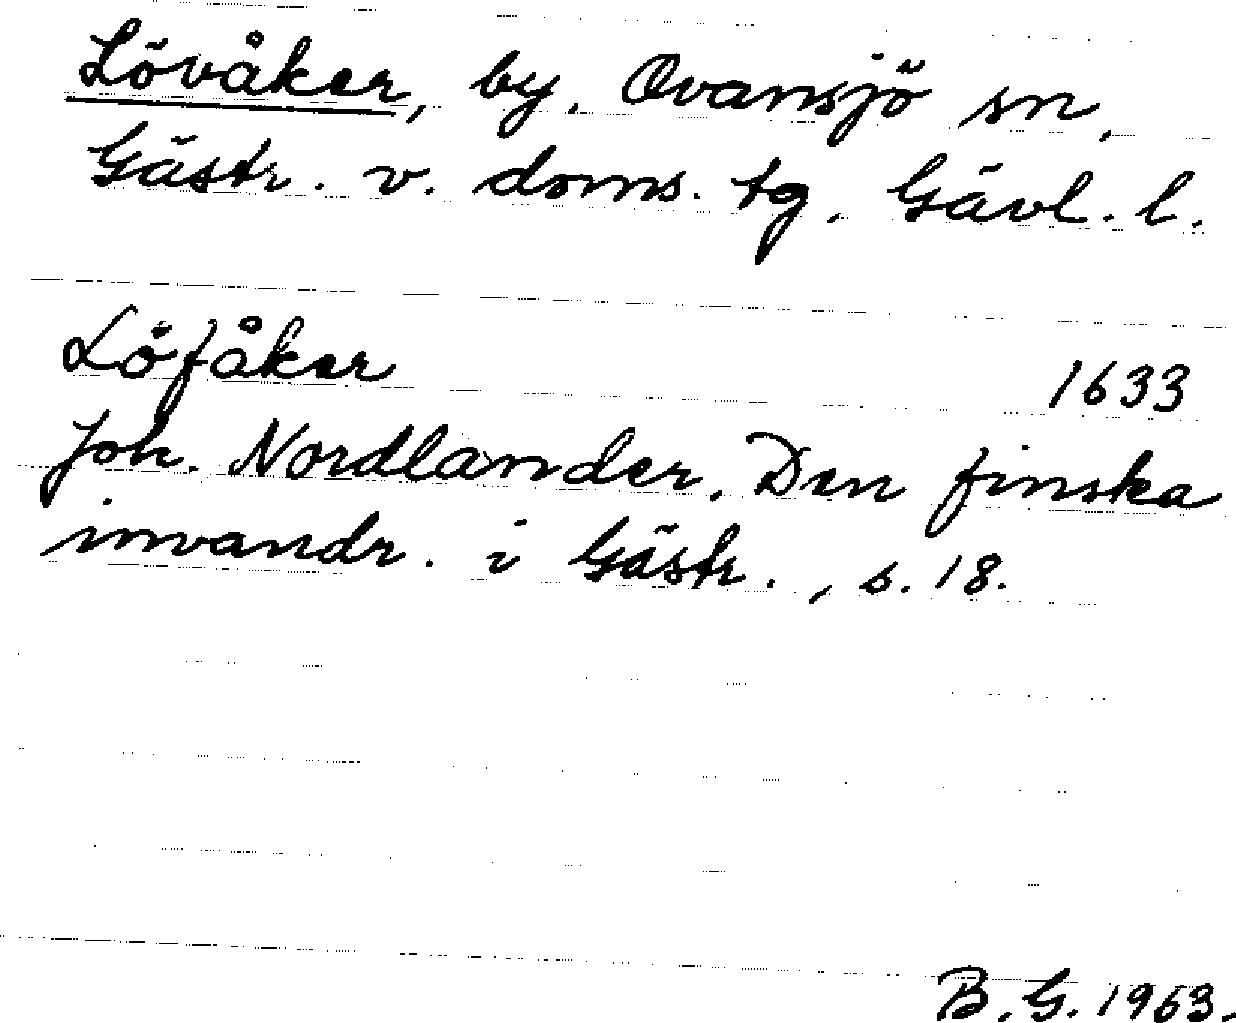 Lövåker, by, Ovansjö sn,
Gästr. v. doms. tg, Gävl. l.
Löfåker 1633
Joh. Nordlander, Den finska
invandr. i Gästr., s. 18.
B. G. 1963.